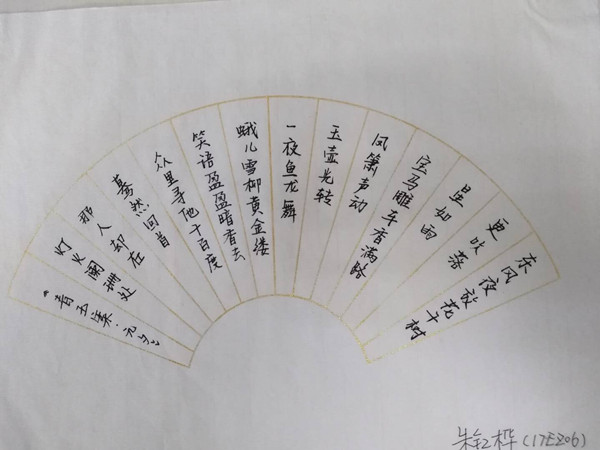 东风夜放花千树
更吹落
星如雨
宝马雕车香满路
凤箫声动
玉壶光转
一夜鱼龙舞
蛾儿雪柳黄金缕
笑语盈盈暗香去
众里寻他千百度
蓦然回首
那人却在
灯火阑珊处
《青玉案·元夕》
(17EZ06)